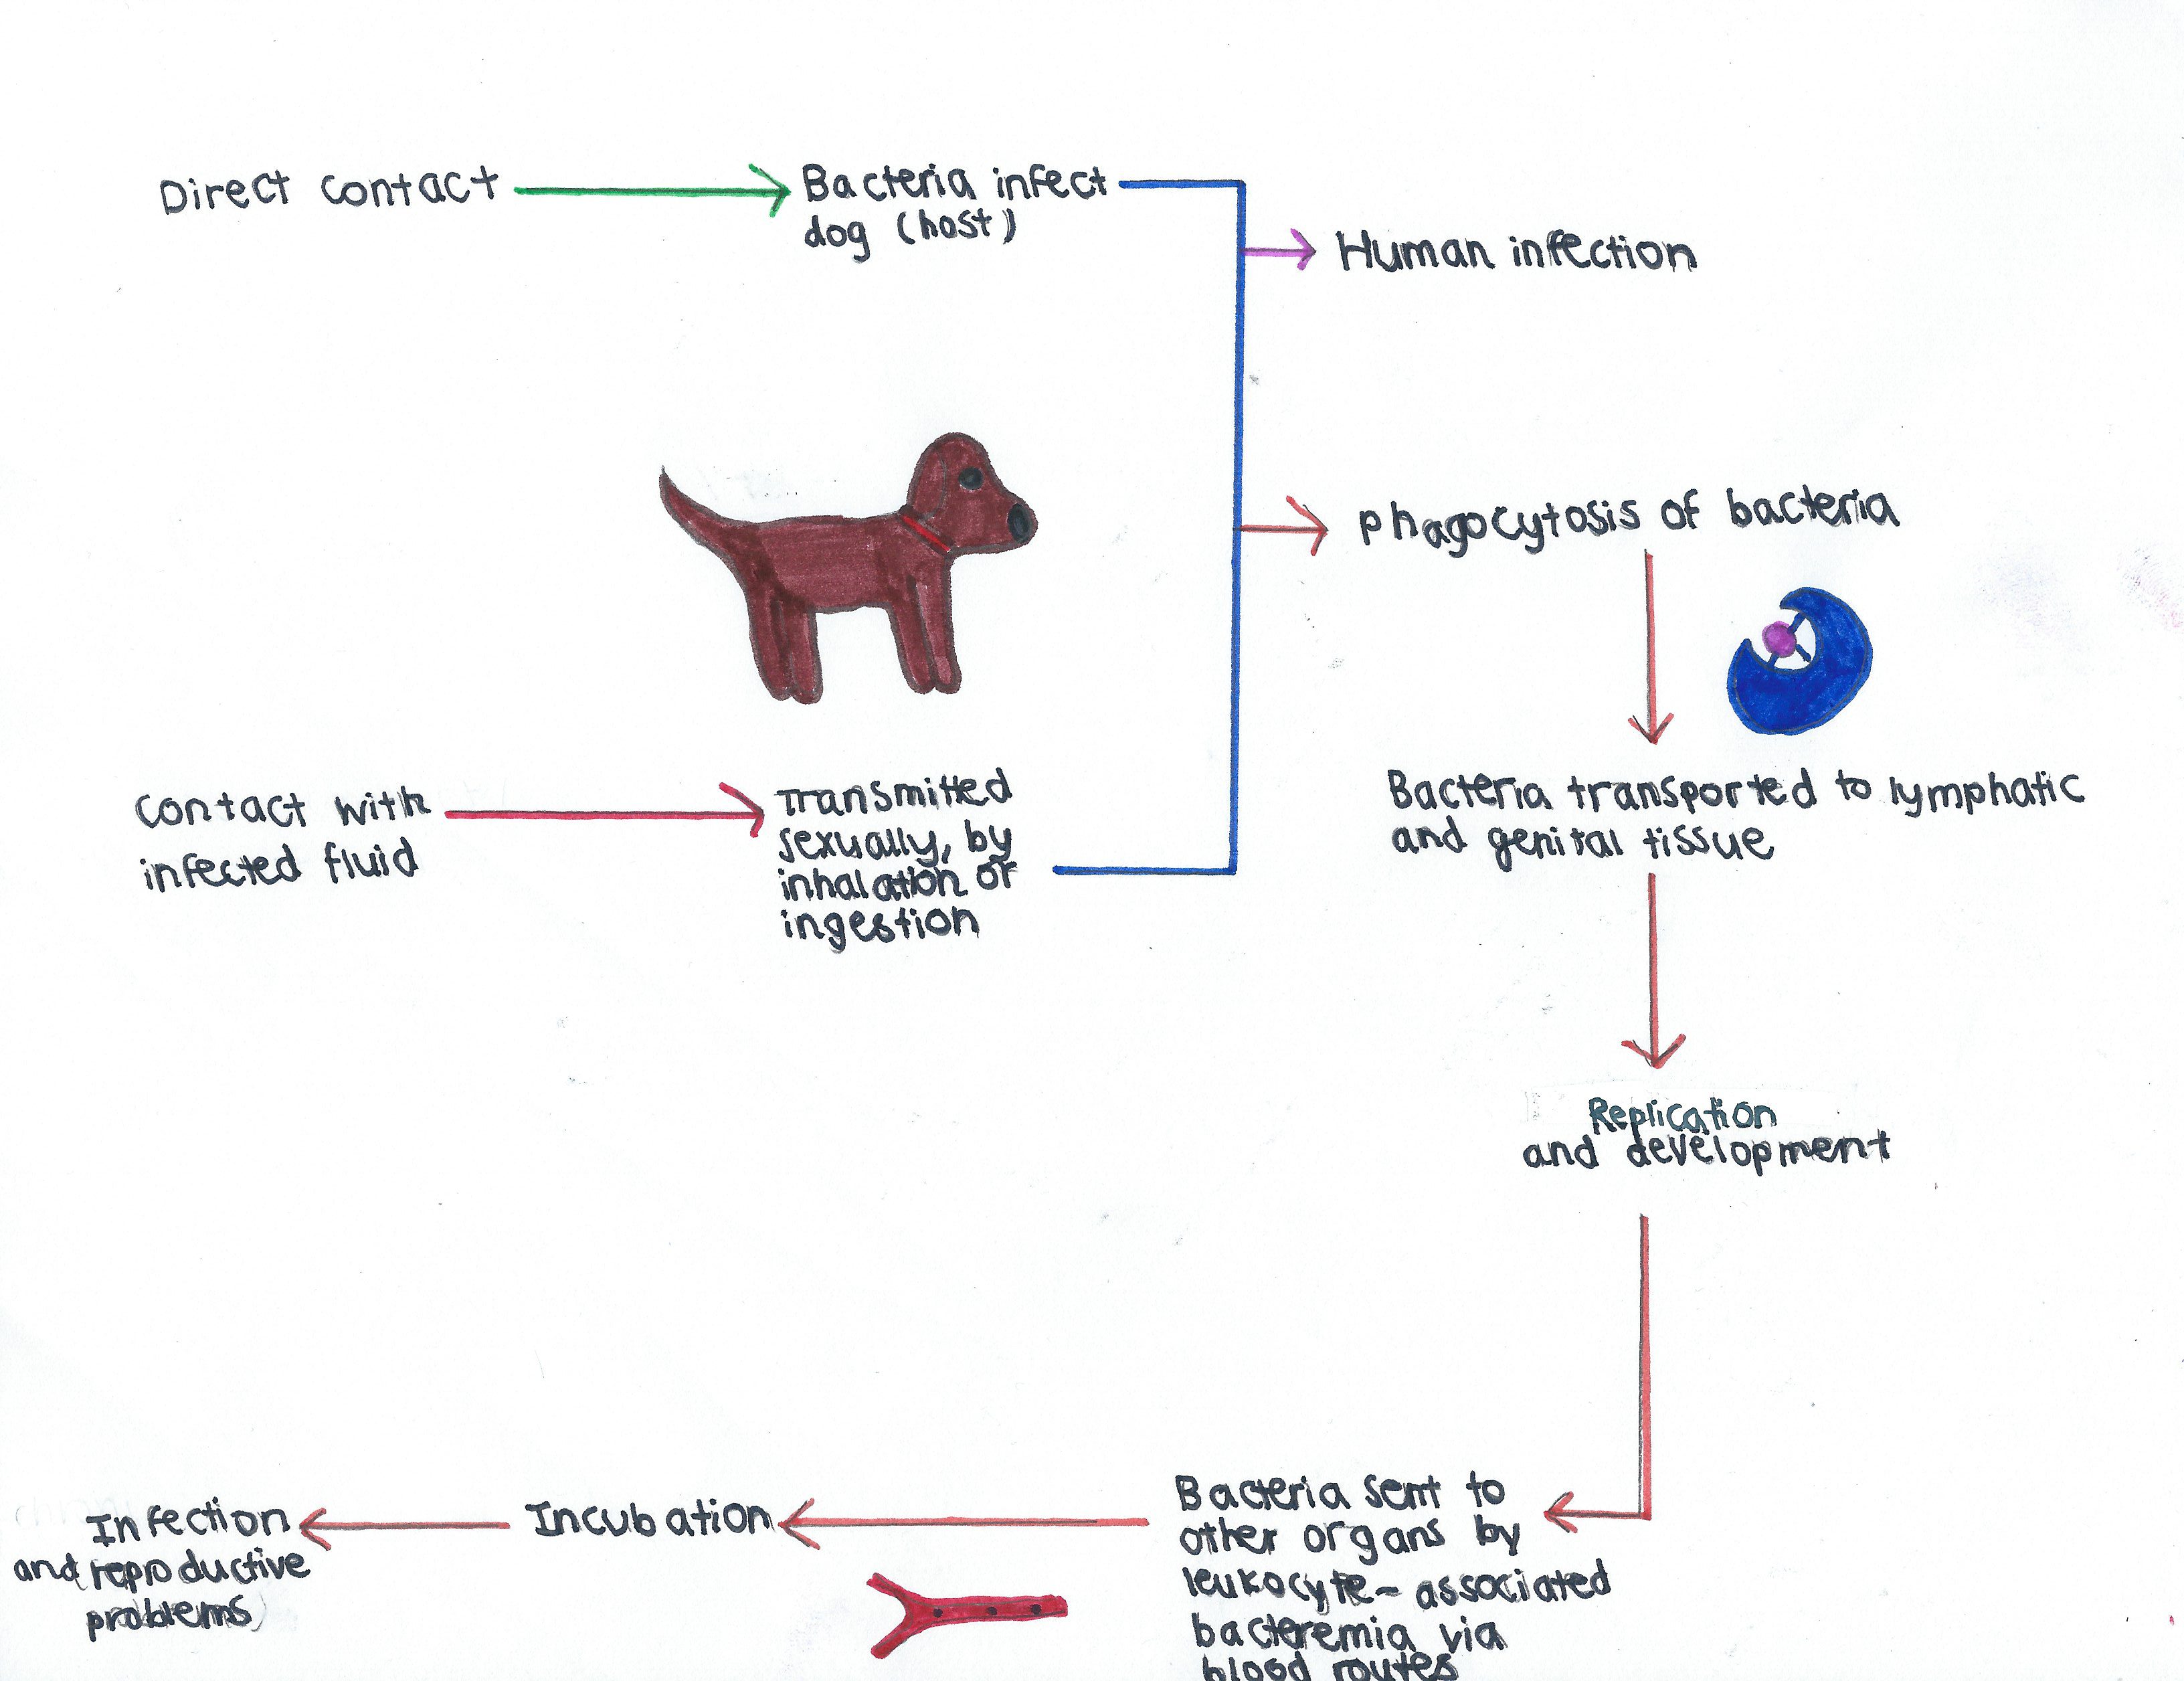 Direct contact
Bacteria infect
dog (host)
Human infection
phagocytosis of bacteria
contact with
infected fluid
Transmitted
sexually, by
inhalation or
ingestion
Bacteria transported to lymphatic
and genital tissue
Replication
and development
Bacteria sent to
other organs by
leukocyte-associated
bacteremia via
blood routes
Incubation
Infection
and reproductive
problems